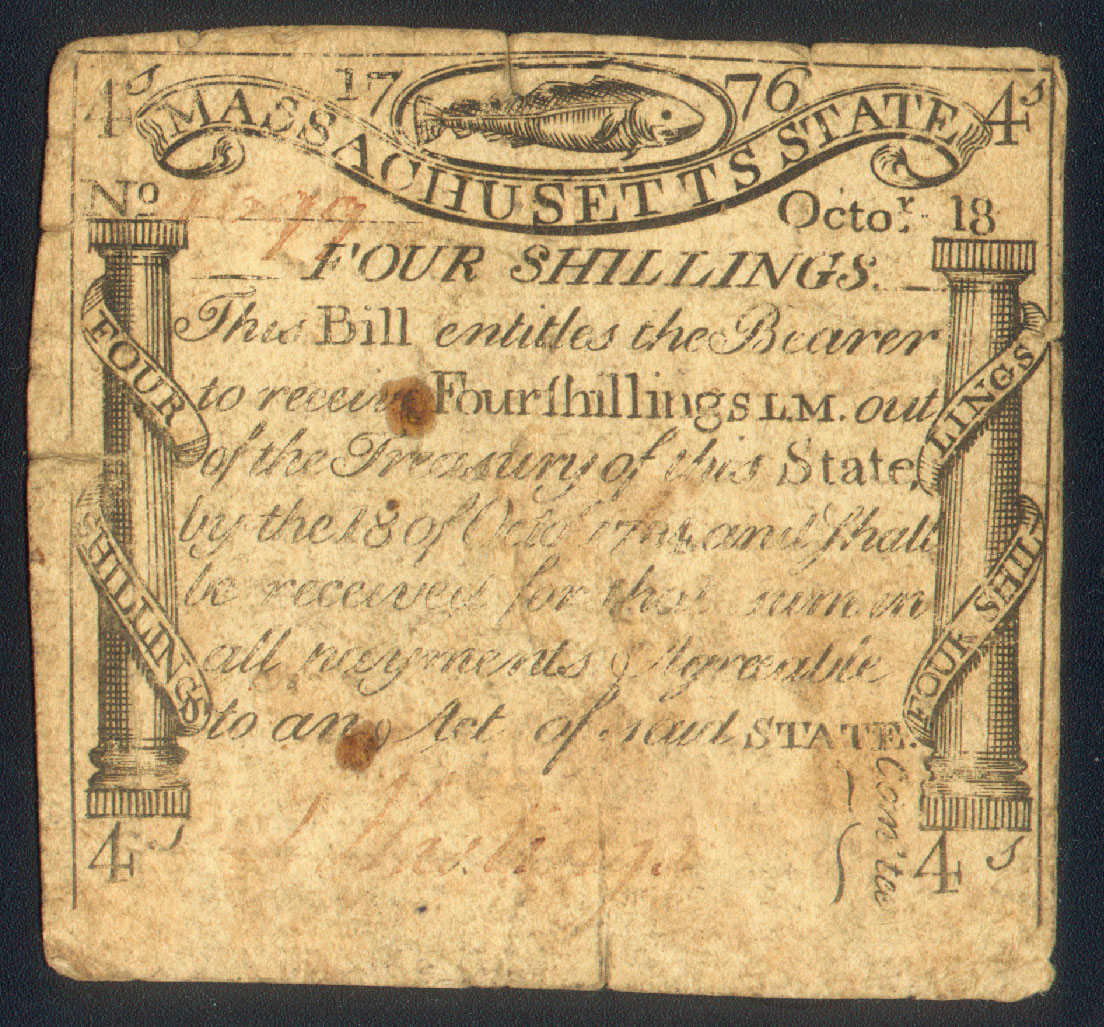 4s 1776 4s
MASSACHUSETTS STATE
No Octor. 18
FOUR SHILLINGS.
This Bill entitles the Bearer
to receive Four ſhillings L.M. out
of the Treasury of this State,
by the 18 of Octr and ſhall
be received for that sum in
all payments Agreeable
to an Act of said STATE.
FOUR
SHILLINGS
FOUR SHIL
LINGS
Com'tee
4s 4s